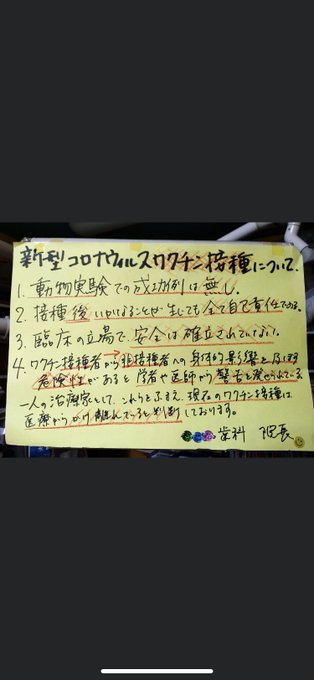 新型コロナウィルスワクチン接種について.
1. 動物実験での成功例は無し.
2. 接種後いかなることが生じても全て自己責任である.
3. 臨床の立場で、安全は確立されていない.
4. ワクチン接種者から非接種者への身体的影響を及ぼす
危険性があると学者や医師から警告を発せられている
一人の治療家として、これらをふまえ、現在のワクチン接種は
医療からかけ離れていると判断しております。
歯科 院長